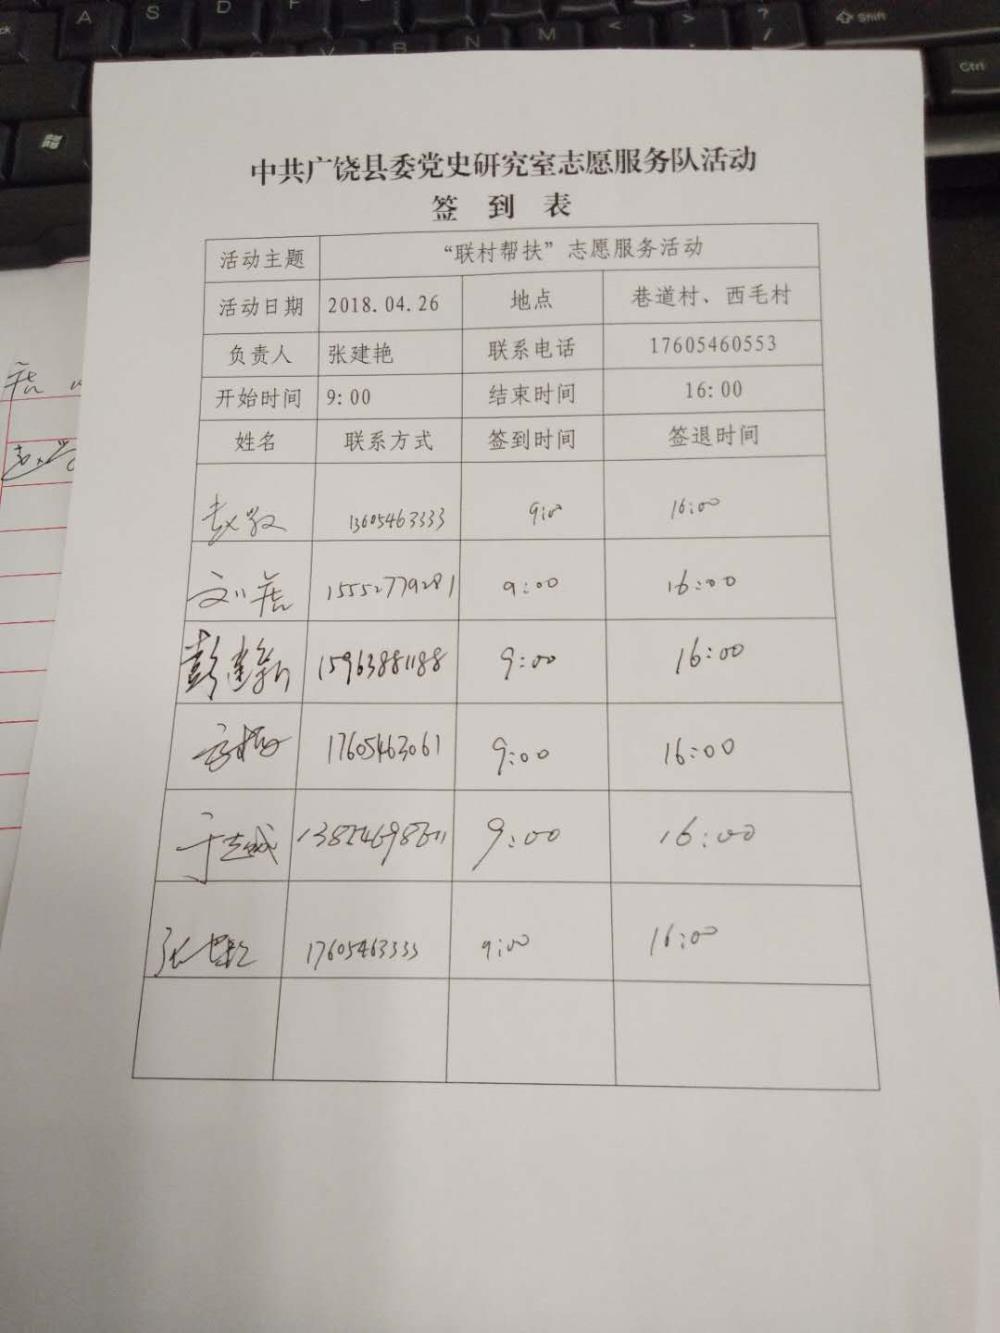 A S D F
V B N M < > ? Shift
Ctrl
中共广饶县委党史研究室志愿服务队活动
签 到 表
活动主题 “联村帮扶”志愿服务活动
活动日期 2018.04.26 地点 巷道村、西毛村
负责人 张建艳 联系电话 17605460553
开始时间 9:00 结束时间 16:00
姓名 联系方式 签到时间 签退时间
赵敏 13605463333 9:00 16:00
刘 15552779281 9:00 16:00
彭建新 15963881188 9:00 16:00
17605463061 9:00 16:00
于志诚 9:00 16:00
张 17605463333 9:00 16:00